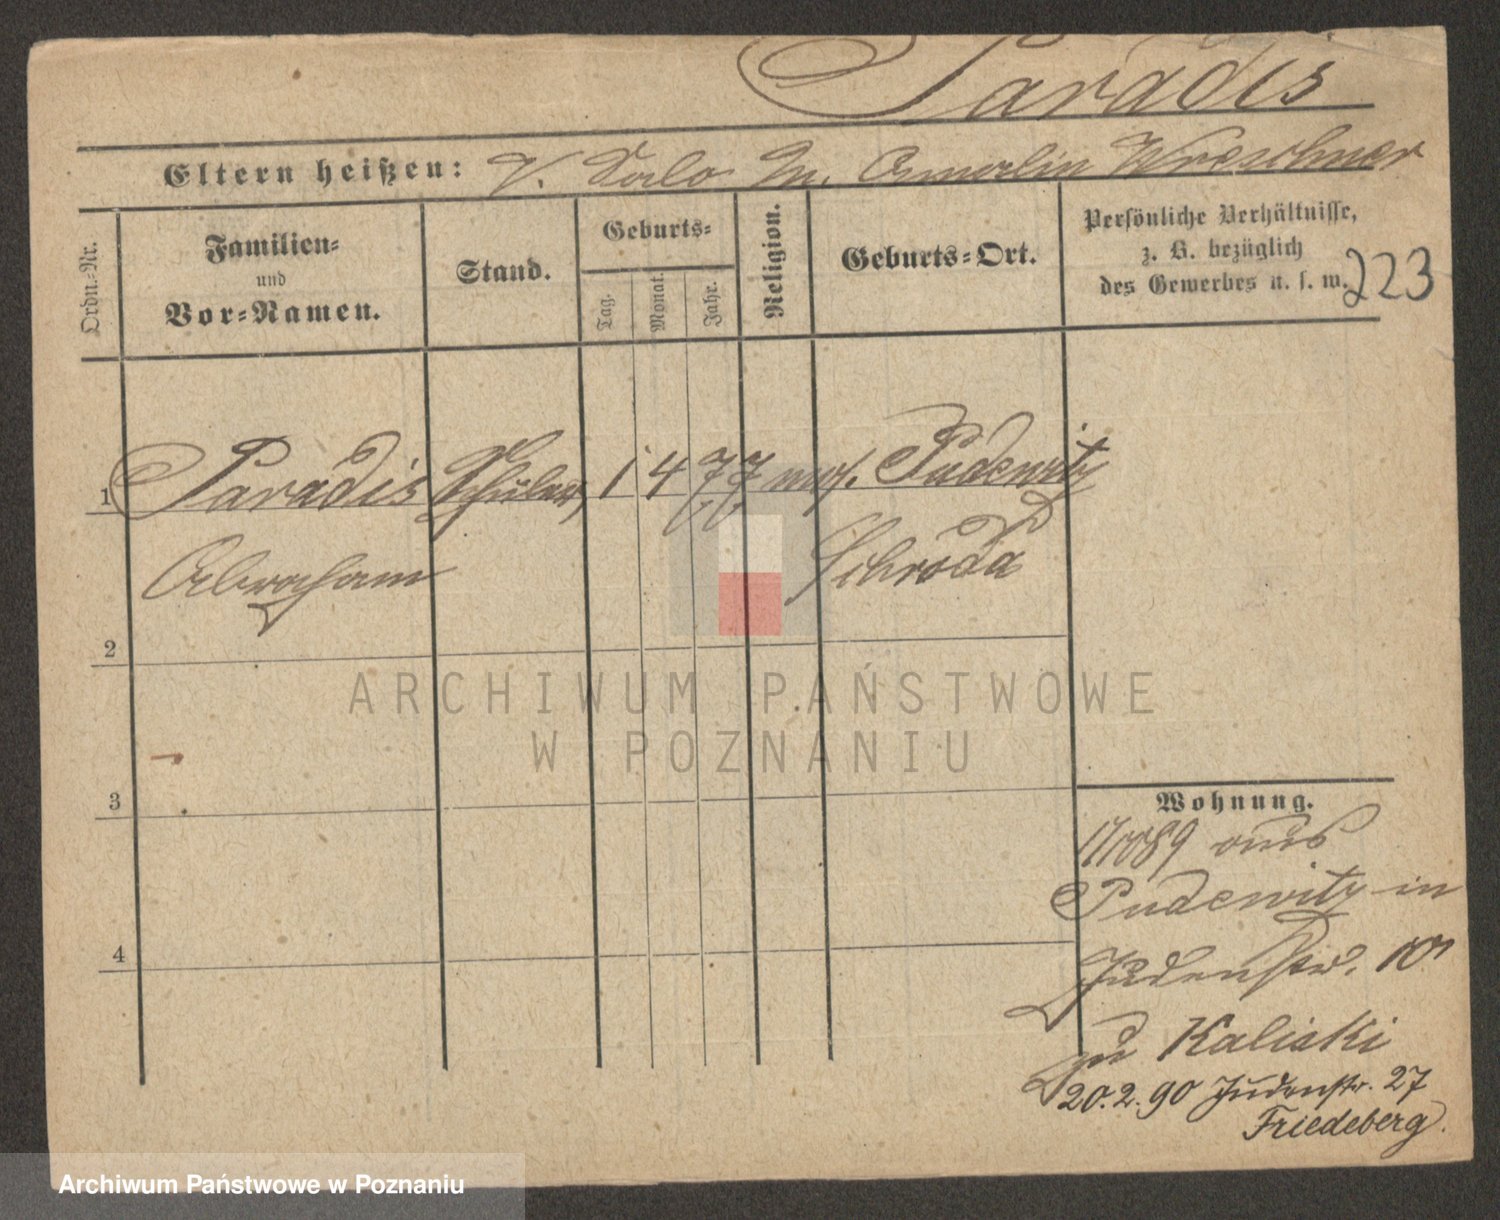 Paradis
Eltern heißen: V. Salo M. Amalin Wreschner
Ordn.-Nr.
Familien-
und
Vor-Namen.
Stand.
Geburts-
Tag.
Monat.
Jahr.
Religion.
Geburts-Ort.
Persönliche Verhältnisse,
z. B. bezüglich
des Gewerbes u. s. w.
223
1 Paradis Schüler 1 4 77 mos. Pudewitz
Abraham Schroda
2
3
4
Wohnung.
89 aus
Pudewitz in
Judenstr.
zu Kaliski
20.2.90 Judenstr. 27
Friedeberg.
ARCHIWUM PAŃSTWOWE
W POZNANIU
Archiwum Państwowe w Poznaniu